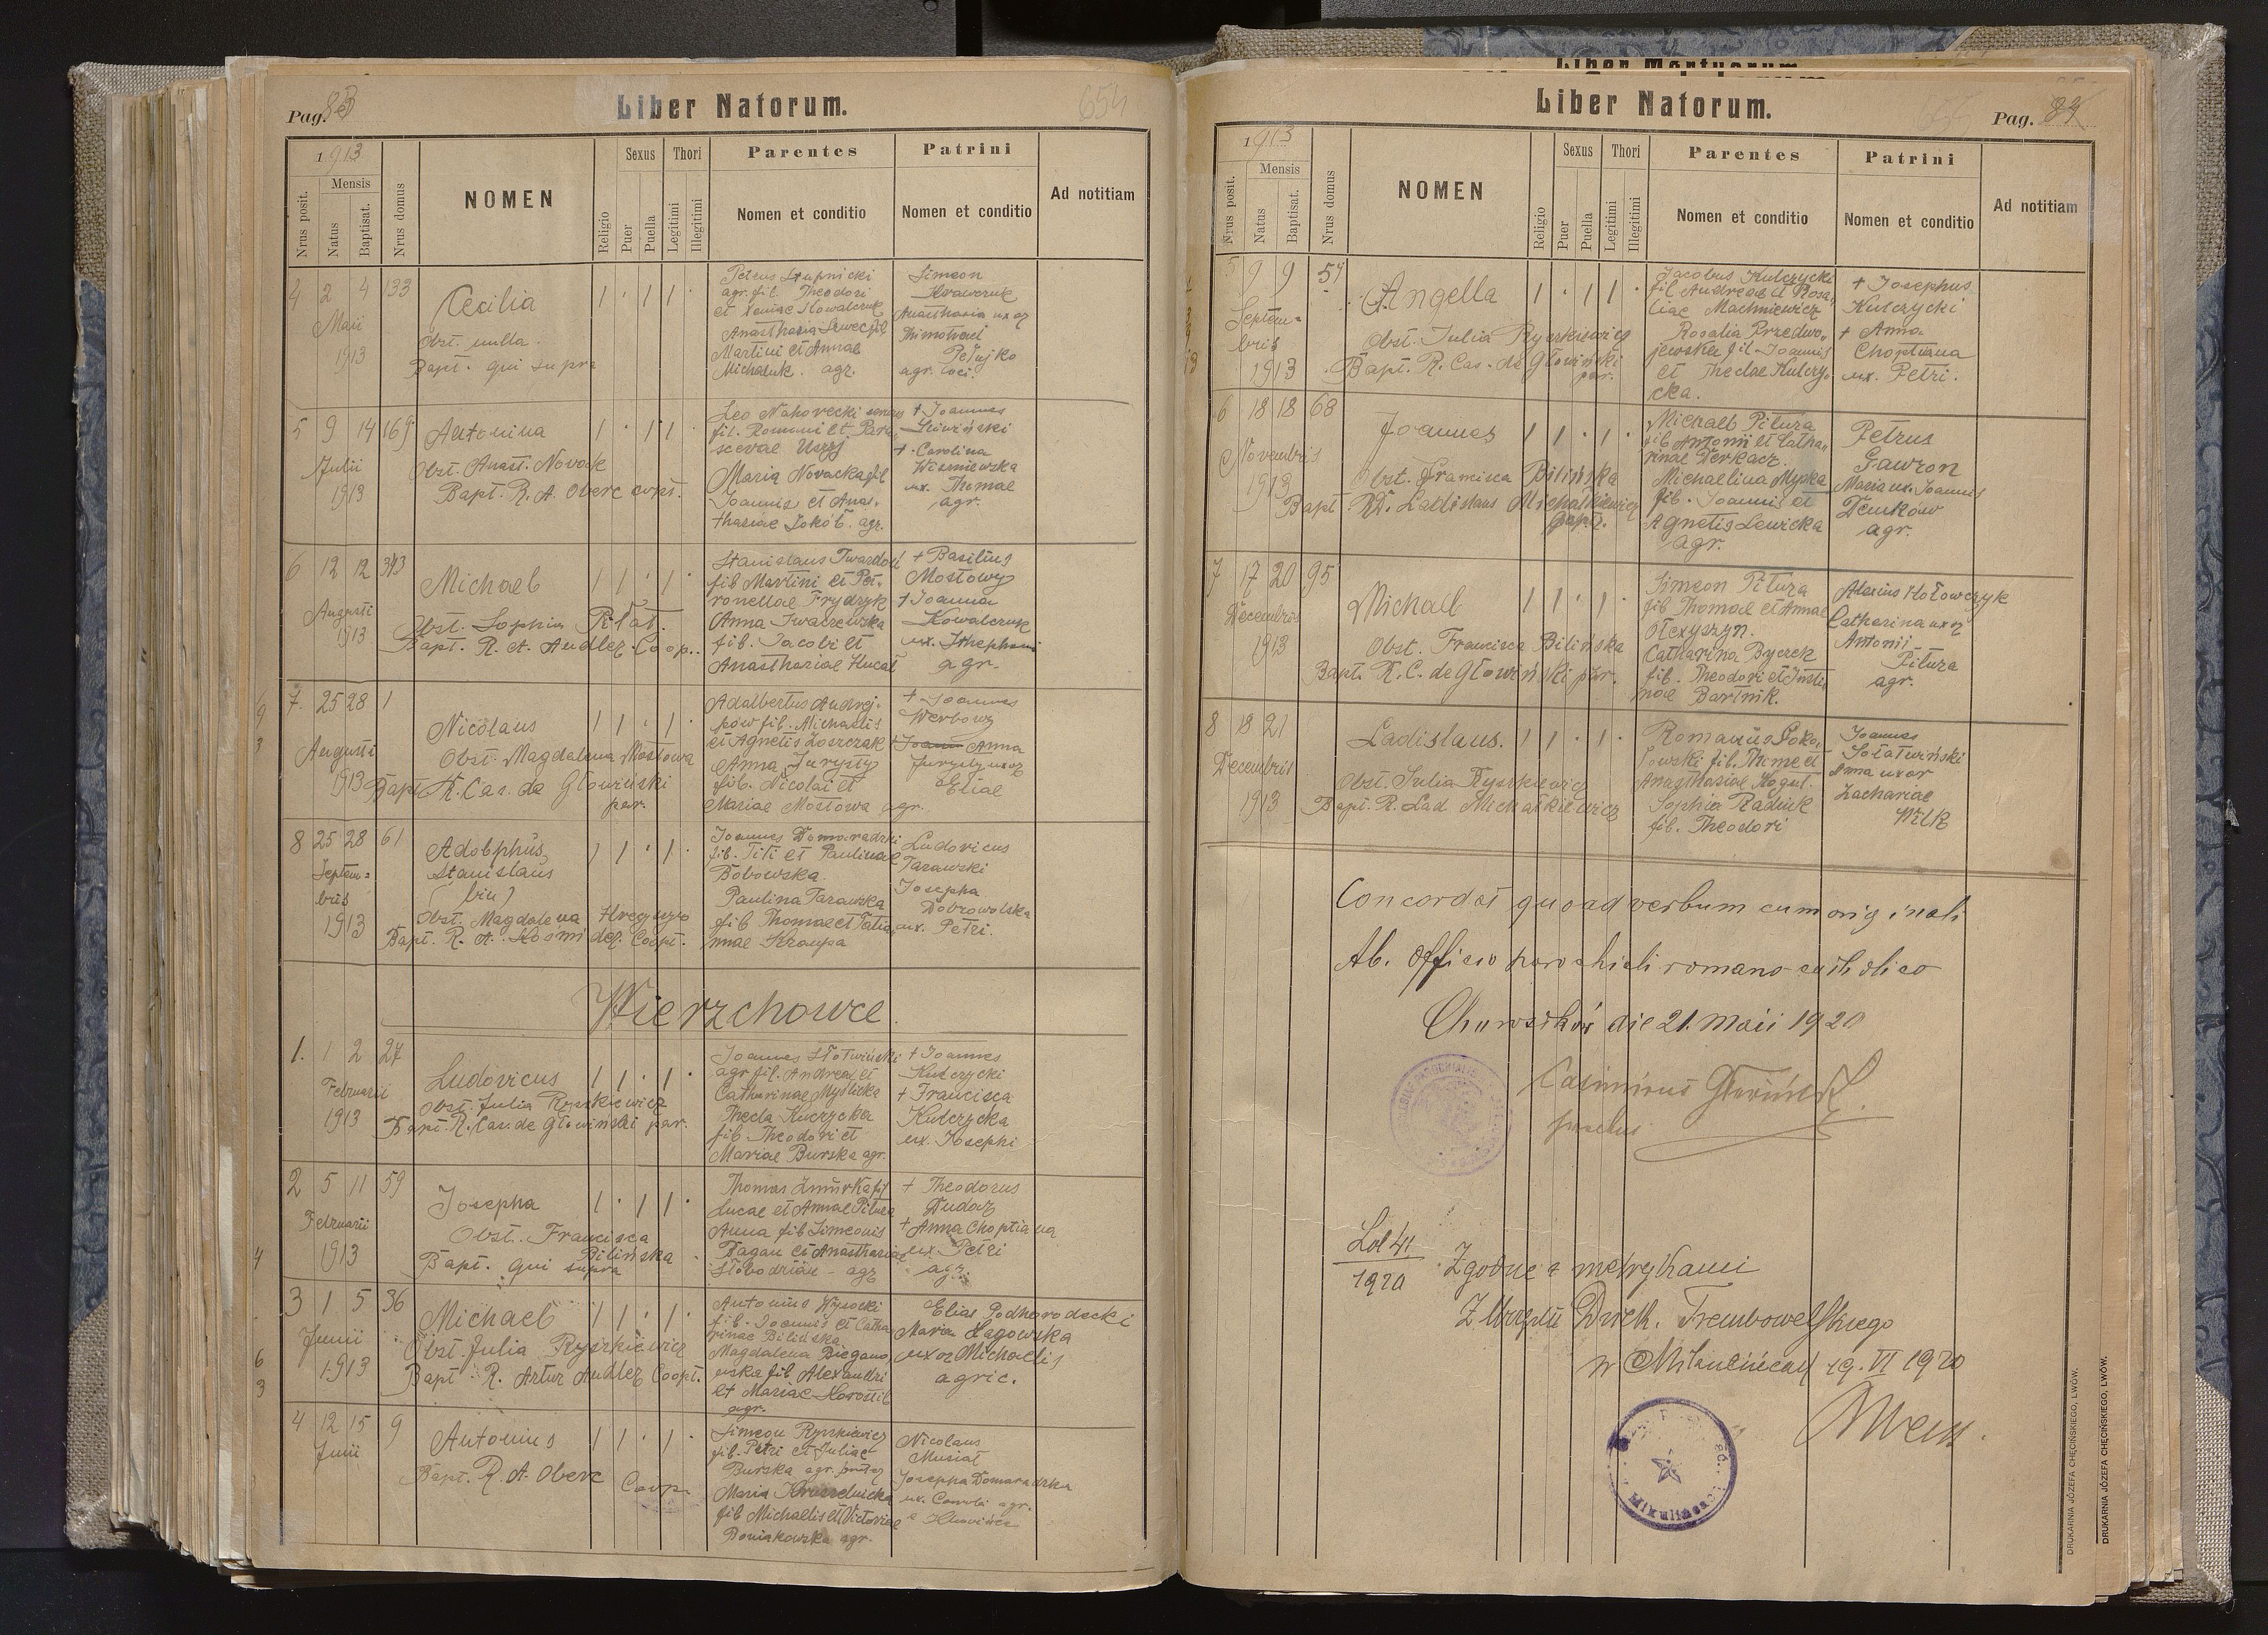 Pag. 83
Liber Natorum.
654
1913
Nrus posit.
Mensis
Natus
Baptisat.
Nrus domus
NOMEN
Religio
Sexus
Puer
Puella
Thori
Legitimi
Illegitimi
Parentes
Nomen et conditio
Patrini
Nomen et conditio
Ad notitiam
4 2 4 133
Maii
1913
Cecilia
Obst. nulla.
Bapt. qui supra
Petrus Stupnicki
agr. fil. Theodori
et Xeniae Kowalczuk
Anasthasia Szwec fil
Martini et Annae
Michaluk. agr.
Simeon
Krawczuk
Anasthasia uxor
Thimothaei
agr. loci.
5 9 14 169
Julii
1913
Antonina
Obst. Anast. Novak
Bapt. R. A. Oberc
Leo Nahorecki
fil. Romani et Para
scevae
Maria Novacka fil
Joannis et Anas-
thasiae Jokób. agr.
+ Joannes
Liwiński
+ Carolina
Wiszniewska
ux. Thomae
agr.
6 12 12 343
Augusti
1913
Michael
Obst. Sophia Piłat.
Bapt. R. A. Audler Coop.
Stanislaus
fil Martini et Pet-
ronellae Frydryk
Anna Iwaszewska
fil. Jacobi et
Anasthasiae
+ Basilius
Mostowy
+ Joanna
Kowalczuk
ux. Stephani
agr.
7. 25 28 1
Augusti
1913
Nicolaus
Obst. Magdalena Mostowa
Bapt. R. Cas. de Głowiński
par.
Adalbertus Andrej-
ków fil. Michaelis
et Agnetis Zoszczak
Anna Jurysty
fil. Nicolai et
Mariae Mostowa agr.
+ Joannes
Werbowy
+ Anna
Jurysty uxor
Eliae
8 25 28 61
Septem=
bris
1913
Adolphus,
Stanislaus
(bin)
Obst. Magdalena
Bapt. R. A. Kośmider. Coopt.
Joannes Domaradzki
fil. Titi et Paulinae
Bobowska.
Paulina Tarawska
fil Thomae et Tatia
nnae Kroupa
Ludovicus
Tarawski
Josepha
Dobrowolska
ux. Petri.
Wierzchowce
1. 1 2 27
Februarii
1913
Ludovicus
Obst. Julia Ryszkiewicz
Bapt. R. Cas. de Głowiński par.
Joannes Słotwiński
agr fil. Andreae et
Catharinae Myslicka
Thecla Kulczycka
fil. Theodori et
Mariae Burska agr.
+ Joannes
Kulczycki
+ Francisca
Kulczycka
ux. Josephi
2 5 11 59
Februarii
1913
Josepha
Obst. Francisca
Bilińska
Bapt. qui supra
Thomas Żmurka fil
Lucae et Annae Pitura
Anna fil Simeonis
Bagan et Anasthasiae
Słobodzian - agr
+ Theodorus
Dudar
+ Anna Choptiana
ux. Petri
agr.
3 1 5 36
Junii
1913
Michael
Obst. Julia Ryszkiewicz
Bapt. R. Artur Audler Coopt.
Antonius Wysocki
fil. Joannis et Catha
rinae Bilińska
Magdalena Biegano
wska fil Alexandri
et Mariae Horostil
agr.
Elias Podhorodecki
Maria Łagowska
uxor Michaelis
agric.
4 12 15 9
Junii
Antonius
Bapt. R. A. Oberc
Coop.
Simeon Ryszkiewicz
fil. Petri et Juliae
Burska agr.
Maria
fil Michaelis et Victoriae
Boniakowska agr.
Nicolaus
Musiał
Josepha Domaradzka
ux. Caroli agr.
Liber Mortuorum
Liber Natorum.
Pag. 84
1913
Nrus posit.
Mensis
Natus
Baptisat.
Nrus domus
NOMEN
Religio
Sexus
Puer
Puella
Thori
Legitimi
Illegitimi
Parentes
Nomen et conditio
Patrini
Nomen et conditio
Ad notitiam
5 9 9 54
Septem=
bris
1913
Angella
Obst. Julia Ryszkiewicz
Bapt. R. Cas. de Głowiński
par.
Jacobus Kulczycki
fil Andreae et Rosa,
liae Machniewicz
Rosalia Przedwo,
jewska fil. Joannis
et Theclae Kulczy,
cka.
+ Josephus
Kulczycki
+ Anna
Choptiana
ux. Petri.
6 18 18 68
Novembris
1913
Joannes
Obst. Francisca Bilińska
Bapt. R. D. Ladislaus Michałkiewicz
Michael Pitura
fil Antonii et Catha
rinae Derkacz
Michaelina Myska
fil. Joannis et
Agnetis Lewicka
agr.
Petrus
Gawron
Maria ux. Joannis
Demków
agr.
7 17 20 95
Decembris
1913
Michael
Obst. Francisca Bilińska
Bapt. R. C. de Głowiński par.
Simeon Pitura
fil Thomae et Annae
Ołexyszyn.
Catharina Byczek
fil. Theodori et Justi
nae Bartnik.
Alexius Hołowczyk
Catharina uxor
Antonii
Pitura
agr.
8 18 21
Decembris
1913
Ladislaus.
Obst. Julia Ryszkiewicz
Bapt. R. Lad Michałkiewicz
Romanus Soko,
łowski fil. Thimet
Anasthasiae Kogut.
Sophia Radiuk
fil. Theodori
Joannes
Sołatwiński
Anna uxor
Zachariae
Wilk
Concordat quoad verbum cum originali
Ab. Officio parochiali romano catholico
die 21. Maii 1920
Casimirus Głowiński
parochus
Lol 41
1920
Zgodne z metrykami
Z Urzędu Dziek. Trembowelskiego
w Mikulińcach 19. VI 1920
DRUKARNIA JÓZEFA CHĘCIŃSKIEGO, LWÓW.
DRUKARNIA JÓZEFA CHĘCIŃSKIEGO, LWÓW.